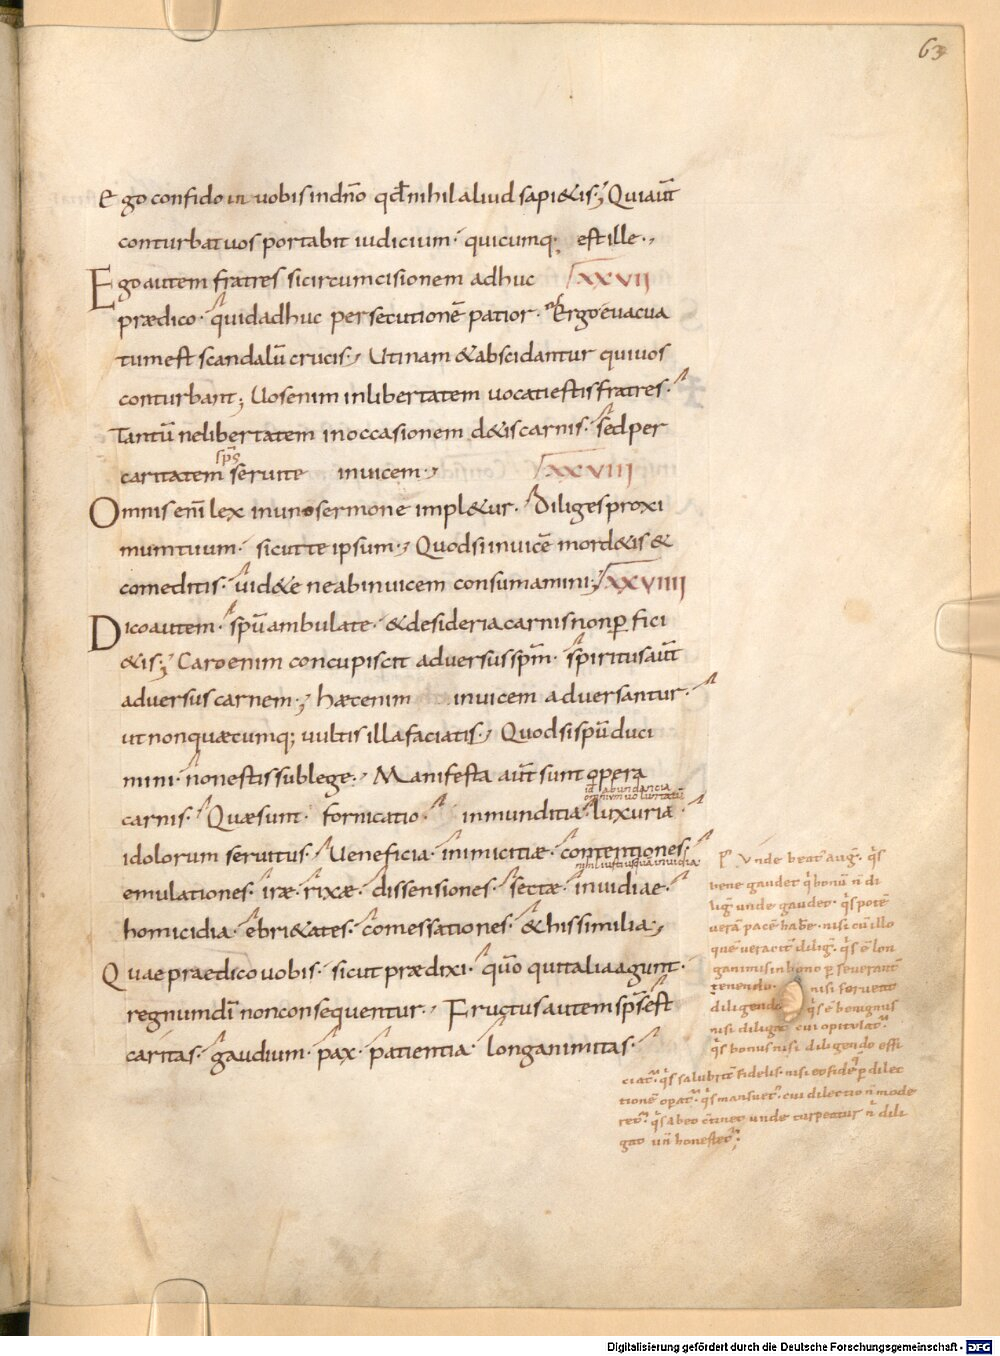 63
Ego confido in uobis indno qd nihil aliud sapi&is; Quia aut
conturbat uos portabit iudicium· quicumq; est ille·,
Ego autem fratres si circumcisionem adhuc XXVII
prædico· quid adhuc persecutionē patior· Ergo euacua
tum est scandalū crucis·, Utinam & abscidantur qui uos
conturbant; Uos enim in libertatem uocati estis fratres·
Tantū ne libertatem in occasionem d&is carnis· sed per
sp̄s
caritatem seruite inuicem·, XXVIII
Omnis enī lex in uno sermone impl&ur· Diliges proxi
mum tuum· sicut te ipsum·, Quod si inuicē mord&is &
comeditis· uid&e ne ab inuicem consumamini·, XXVIIII
Dico autem· spū ambulate· & desideria carnis non p̄fici
&is; Caro enim concupiscit aduersus spm̄· spiritus aūt
aduersus carnem·, hæc enim inuicem aduersantur·
ut non quæcumq; uultis illa faciatis·, Quod si spū duci
mini· non estis sub lege·, Manifesta aūt sunt opera
id abundancia
omnium uoluptatū
carnis· Quæ sunt· fornicatio· inmunditia· luxuria·
idolorum seruitus· Ueneficia· inimicitiæ· contentiones·
nihil iustius quā inuidia
emulationes· iræ· rixæ· dissensiones· sectæ· inuidiae·
homicidia· ebri&ates· comessationes· & his similia·,
Quae praedico uobis· sicut prædixi· qūo qui talia agunt·
regnum dī non consequentur·, Fructus autem sp̄s est
caritas· gaudium· pax· patientia· longanimitas·
Vnde beat' auḡ· q̄s
bene gaudet q̄ bonū n̄ di
liḡ unde gaudet· q̄s potē
uerā pacē habe· nisi cū illo
quē uerac̄ diliḡ· q̄s ē lon
ganimis in bono p̄seuerant
tenendo· nisi ferueat
diligendo q̄s ē benignus
nisi diligat cui opitulat'·
q̄s bonus nisi diligendo effi
ciat'· q̄s salubrit̄ fidelis· nisi eo fide p̄ dilec
tionē opat'· q̄s mansuet'· cui dilectio n̄ mode
ret'· q̄s ab eo c̄tinet unde turpeatur n̄ dili
gat un̄ honestet';
Digitalisierung gefördert durch die Deutsche Forschungsgemeinschaft - DFG